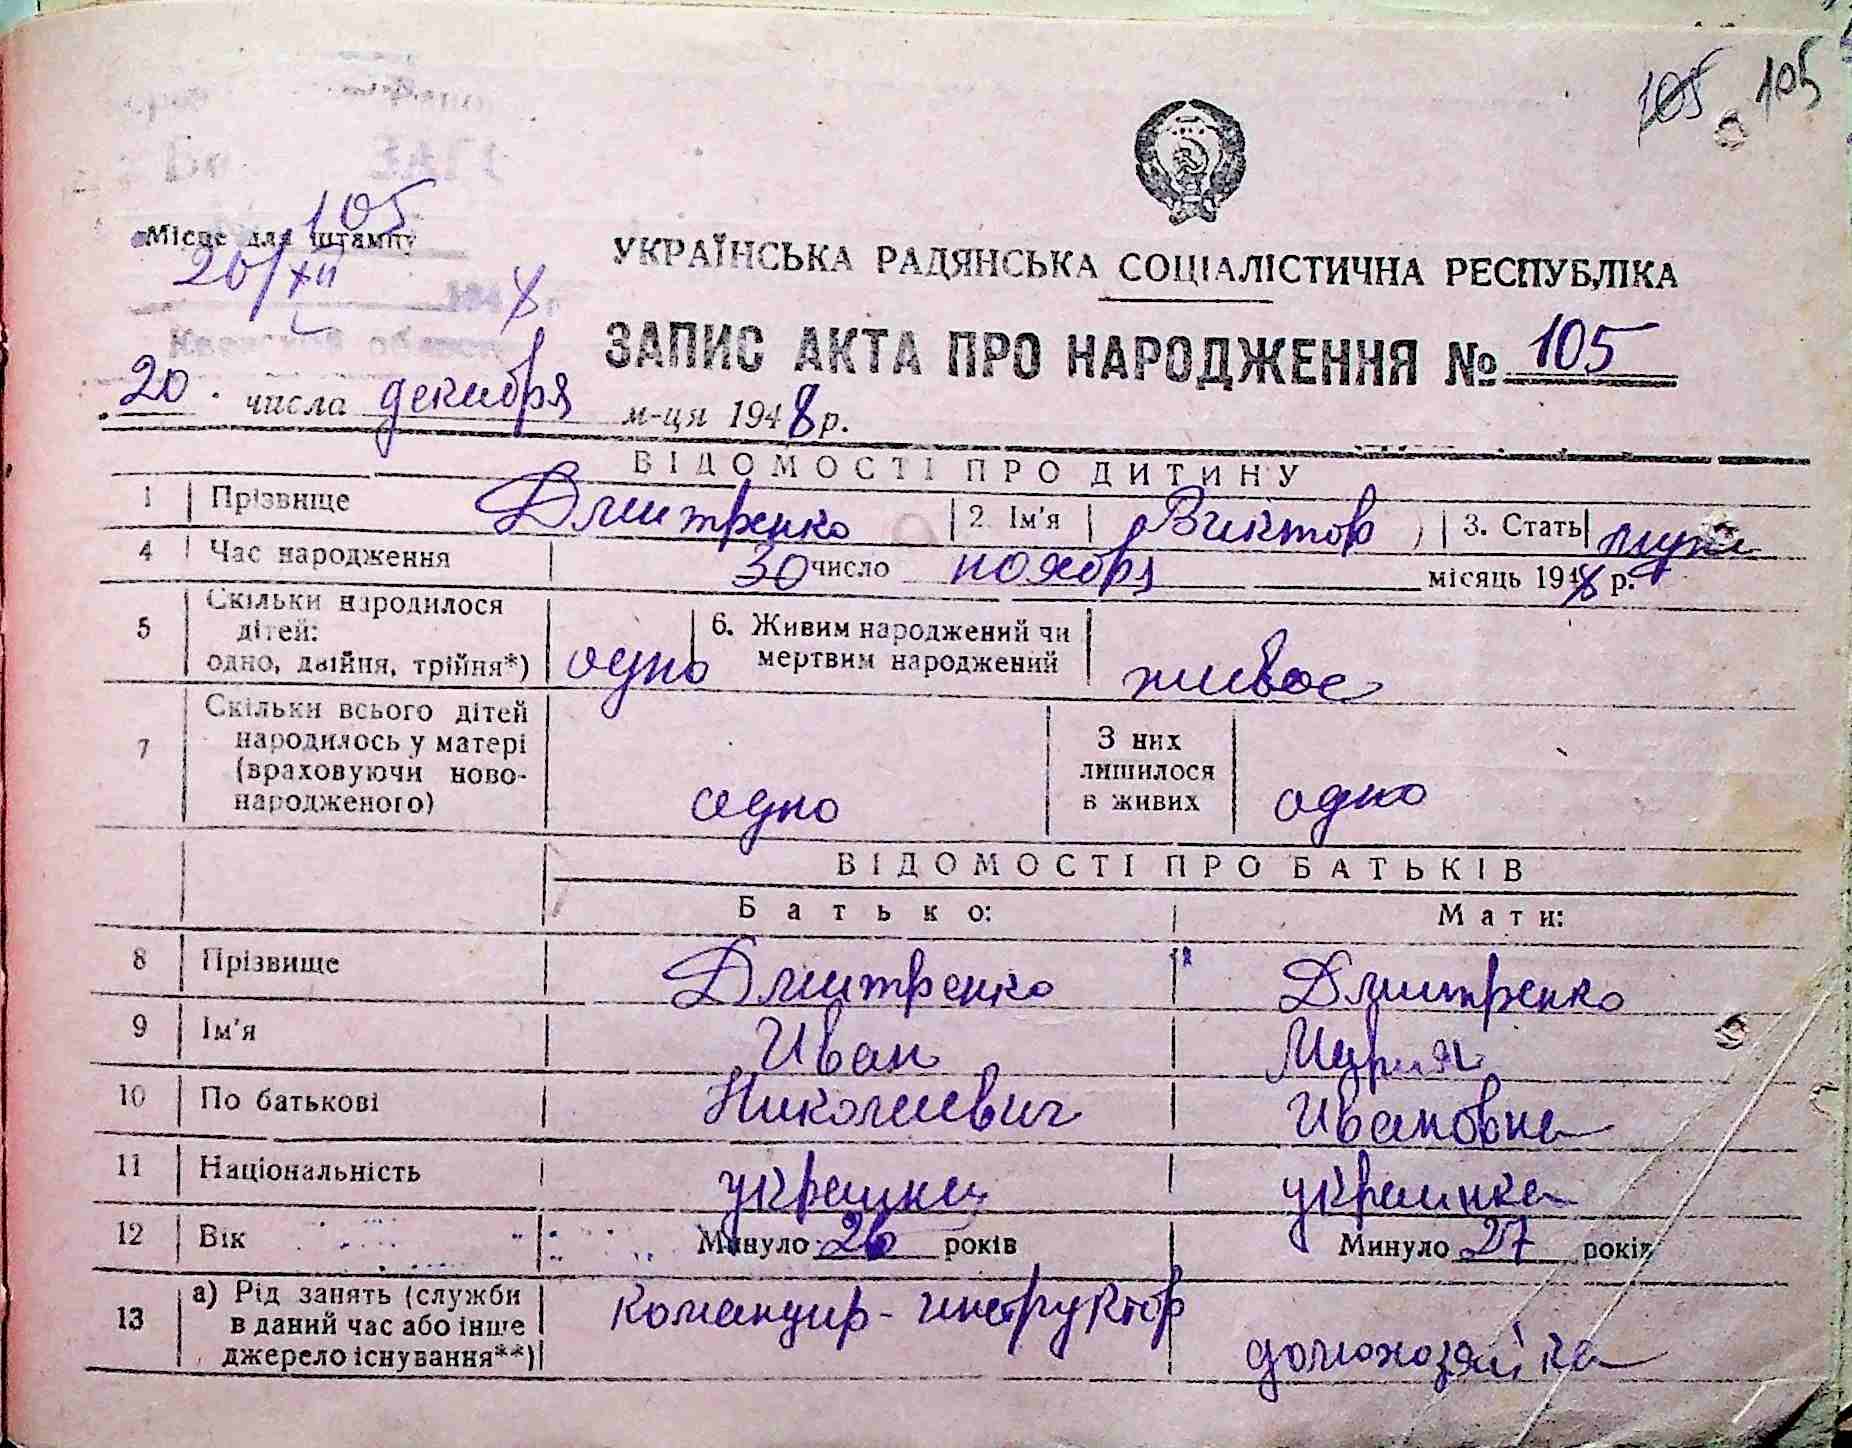 105 105
105
Місце для штампу
20/XII
УКРАЇНСЬКА РАДЯНСЬКА СОЦІАЛІСТИЧНА РЕСПУБЛІКА
ЗАПИС АКТА ПРО НАРОДЖЕННЯ № 105
20 числа декабря м-ця 1948 р.
ВІДОМОСТІ ПРО ДИТИНУ
1 Прізвище Дмитренко 2. Ім'я Виктор 3. Стать муж
4 Час народження 30 число ноября місяць 1948 р.
5 Скільки народилося
дітей:
одно, двійня, трійня*) одно
6. Живим народжений чи
мертвим народжений живое
7 Скільки всього дітей
народилось у матері
(враховуючи ново-
народженого) одно
З них
лишилося
в живих одно
ВІДОМОСТІ ПРО БАТЬКІВ
Батько: Мати:
8 Прізвище Дмитренко Дмитренко
9 Ім'я Иван Мария
10 По батькові Николаевич Ивановна
11 Національність украинец украинка
12 Вік Минуло 26 років Минуло 27 років
13 а) Рід занять (служби
в даний час або інше
джерело існування**) командир-инструктор домохозяйка